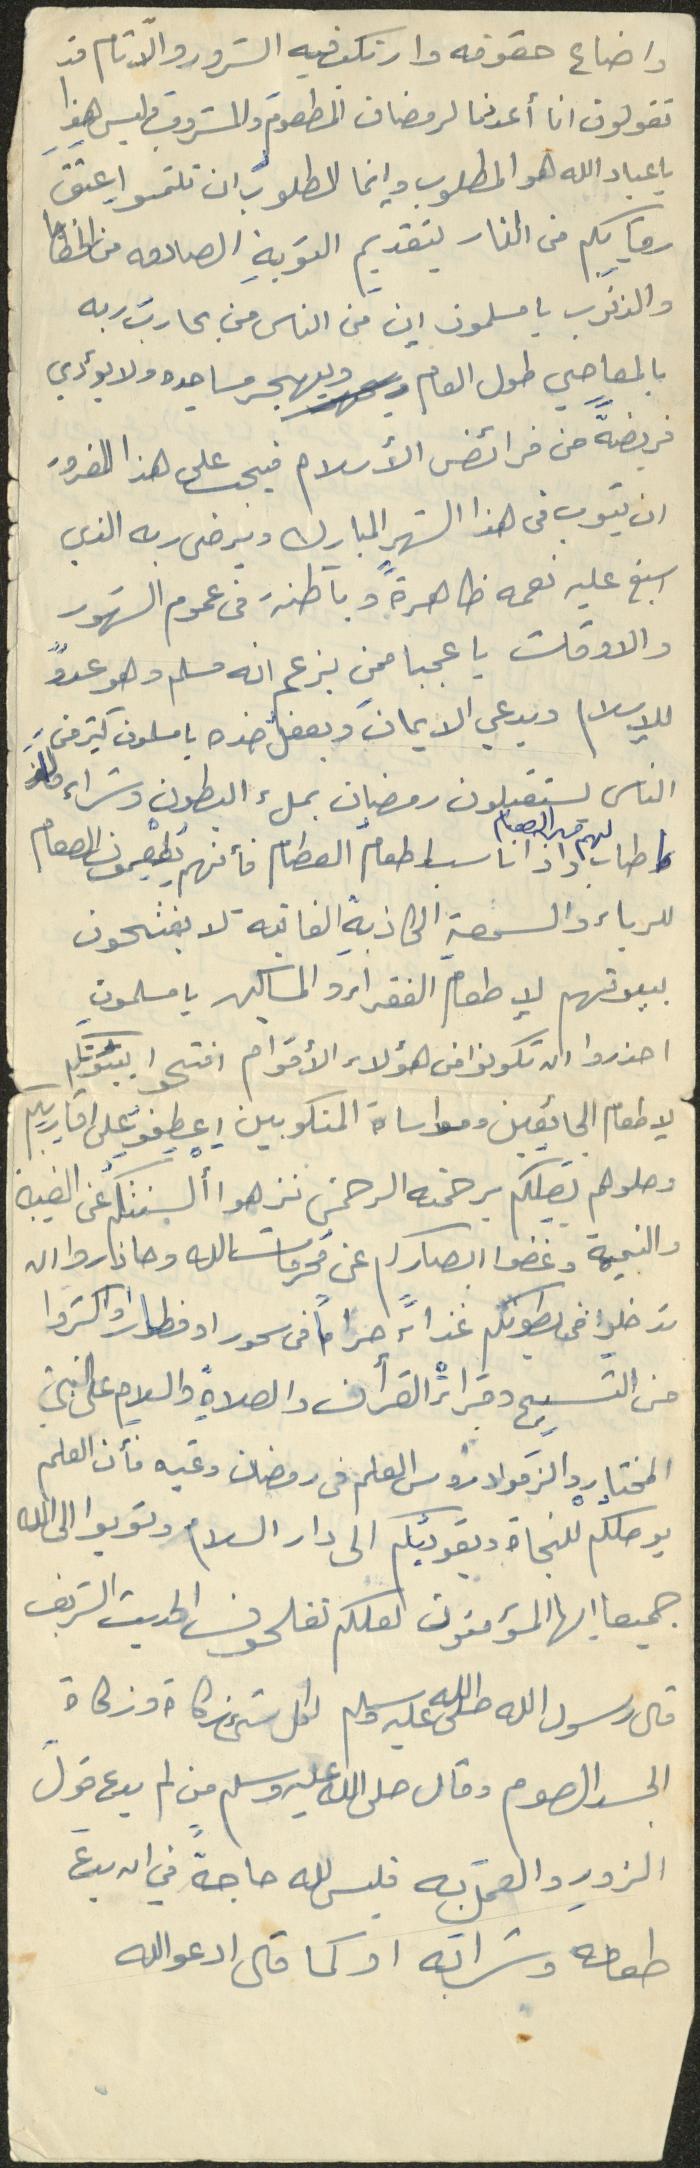 واضاع حقوقه وارتكب فيه الشرور والآثام قد
تقولون انا أعددنا لرمضان المطعوم والمشروب فليس هذا
ياعباد الله هو المطلوب وإنما المطلوب ان تلتمسوا عتق
رقابكم من النار بتقديم التوبة الصادقه من الخطايا
والذنوب يا مسلمون إن من الناس من يحارب ربه
بالمعاصي طول العام ويهجر مساجده ولا يؤدي
فريضةً من فرائض الأسلام فيجب على هذا المغرور
ان يتوب فى هذا الشهر المبارك ويرضى ربه الذي
اسبغ عليه نعمه ظاهرةً وباطنة فى عموم الشهور
والاوقات يا عجبا ممن يزعم انه مسلم وهو عدوٌ
للإسلام ويدعي الايمان ويعمل ضده يا مسلمون كثير من
الناس يستقبلون رمضان بملء البطون وشراء ما لذ
وطاب لهم من الطعام واذا ناسب اطعام الطعام فأنهم يُطعِمون الطعام
للرياء والسمعة الكاذبة الفانيه لا يفتحون
بيوتهم لإطعام الفقراء والمساكين يا مسلمون
احذروا ان تكونوا من هؤلاء الأقوام افتحوا بيوتكم
لإطعام الجائعين ومواساة المنكوبين اعطفو على اقاربكم
وصلوهم يصلكم برحمته الرحمن نزهوا ألسنتكم عن الغيبة
والنميمة وغضوا ابصاركم عن محرمات الله وحاذروا ان
تدخلوا فى بطونكم غذاءً حراماً فى سحور او فطار واكثروا
من التسبيح وقراءة القرأن والصلاة والسلام على النبي
المختار والزموا دروس العلم فى رمضان وغيره فأن العلم
يوصلكم للنجاة ويقودكم الى دار السلام وتوبوا الى الله
جميعا ايها المؤمنون لعلكم تفلحون الحديث الشريف
قال رسول الله صلى الله عليه وسلم لكل شيء زكاة وزكاة
الجسد الصوم وقال صلى الله عليه وسلم من لم يدع قولَ
الزورِ والعمل به فليس لله حاجةً في ان يدعَ
طعامه وشرابه او كما قال ادعو الله